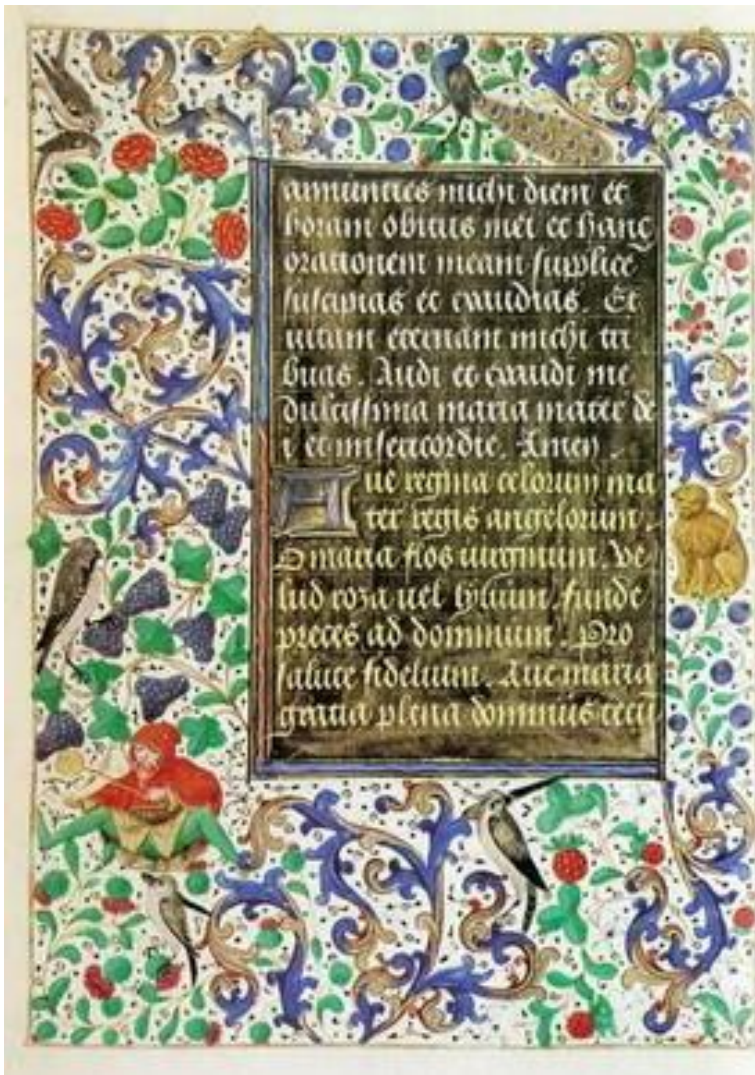 annuncies michi diem et
horam obitus mei et hanc
orationem meam suplice
suscipias et exaudias. Et
uitam eternam michi tri
buas. Audi et exaudi me
dulcissima maria mater de
i et misericordie. Amen.
Aue regina celorum ma
ter regis angelorum.
O maria flos uirginum. Ve
lud roza uel lylium. funde
preces ad dominum. Pro
salute fidelium. Aue maria
gratia plena dominus tecū